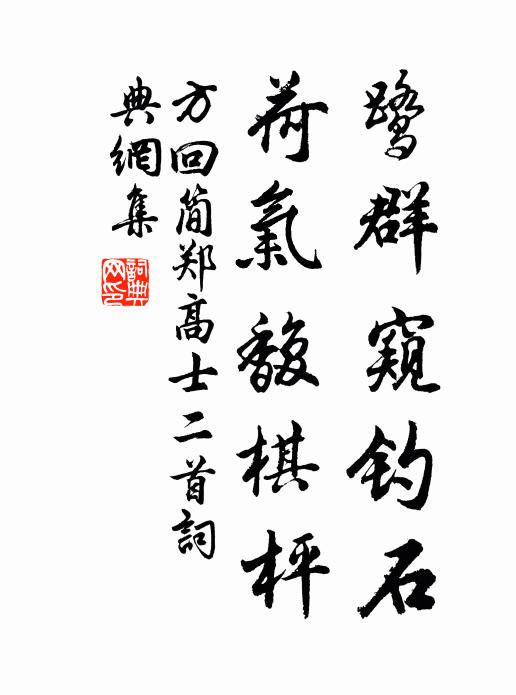 鹭群窺釣石
荷氣馥棋枰
方回简郑高士二首詞
典網集
詞典
网印